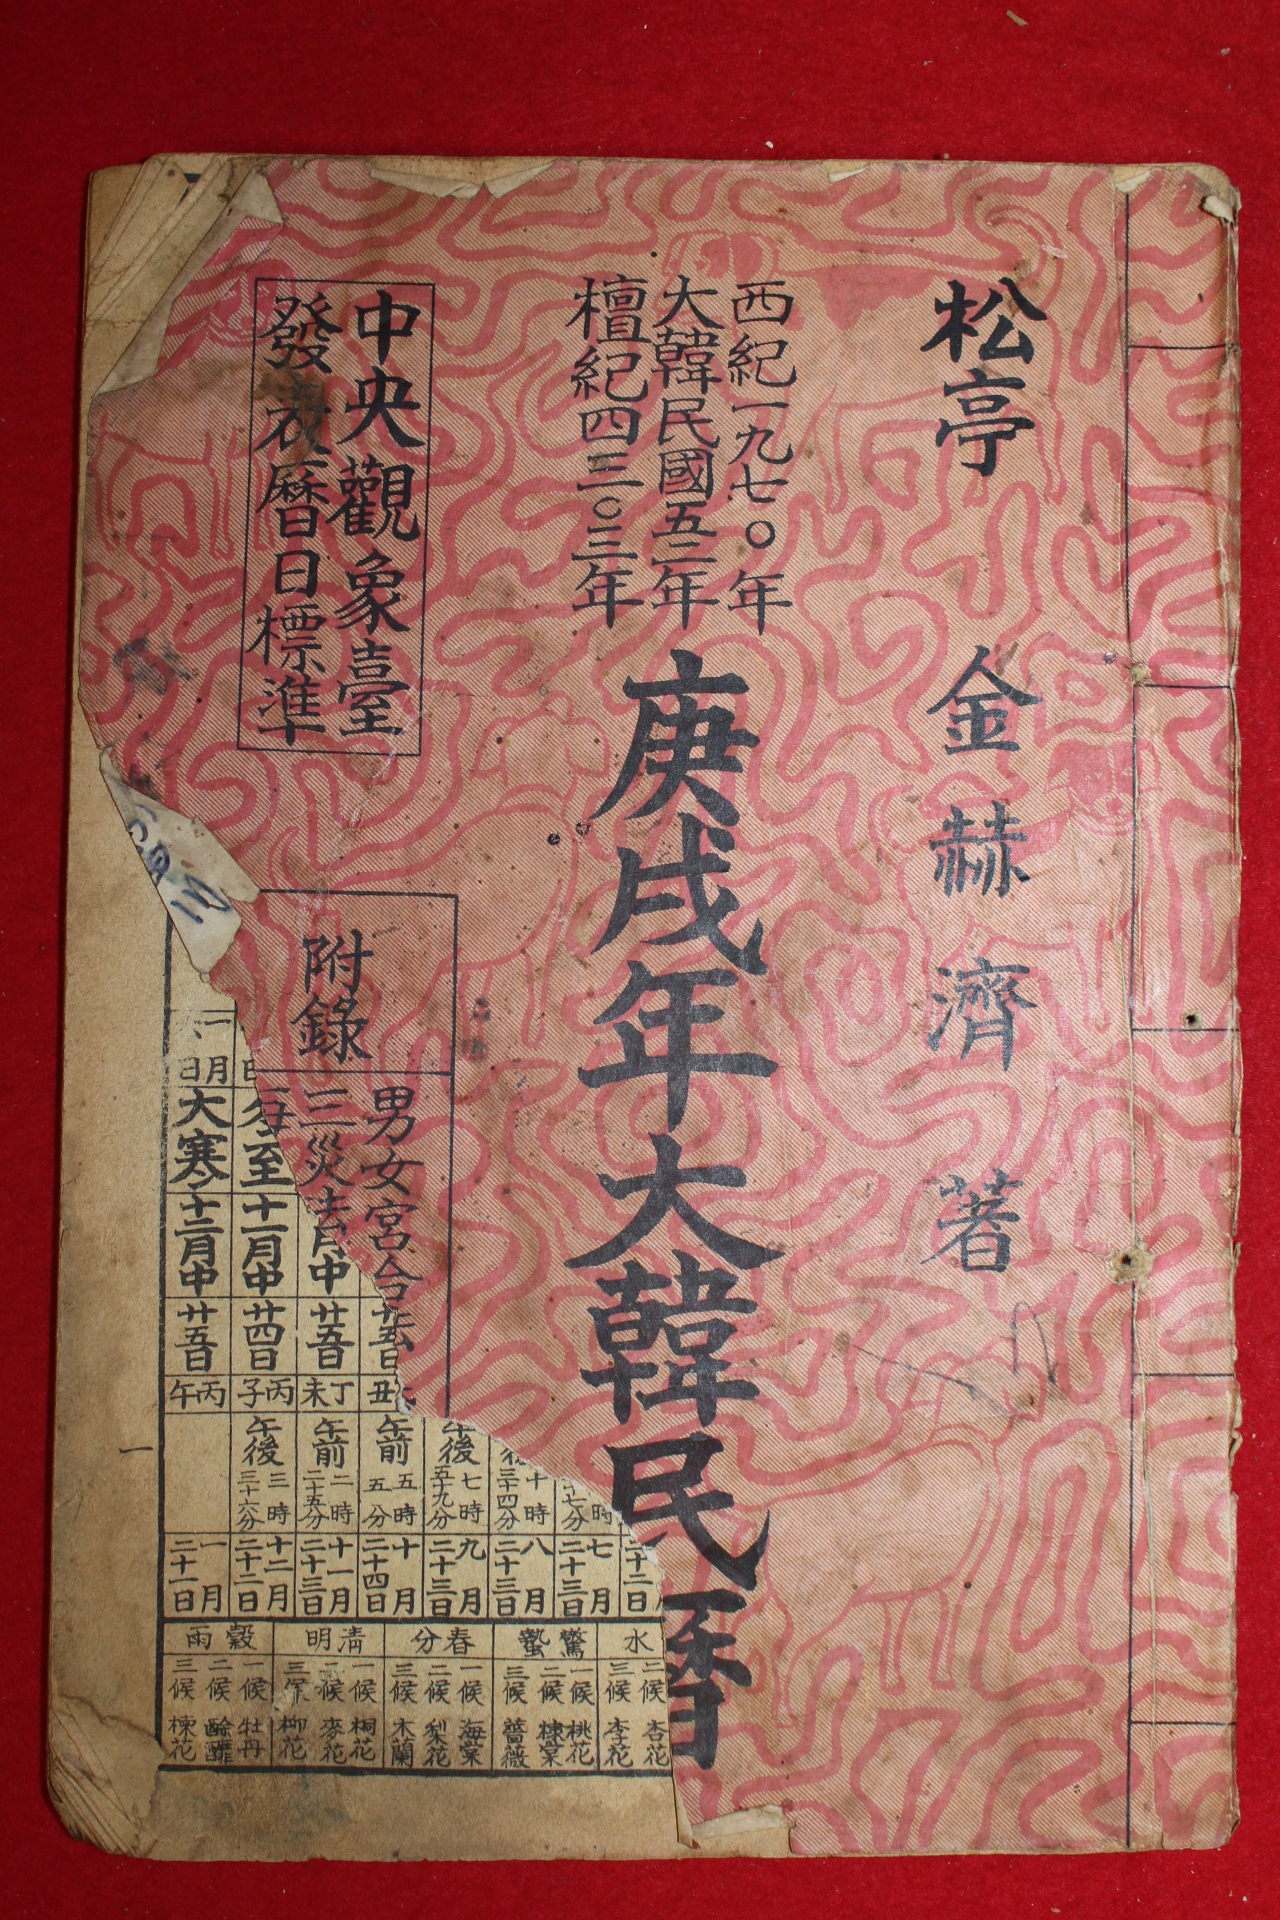 松亭 金赫濟 著
西紀一九七〇年
大韓民國五二年
檀紀四三〇三年
庚戌年大韓民曆
中央觀象臺
發表曆日標準
附錄
男女宮合法
三災法
月中
十一月中
十二月中
至
大寒
一月
日
廿五日
廿五日
廿四日
廿五日
丑
丁未
丙子
丙午
午後
午前
午前
午後
十時
三十四分
七時
五十九分
五時
五分
二時
二十五分
三時
三十六分
二十二日
七月
二十三日
八月
二十三日
九月
二十三日
十月
二十四日
十一月
二十三日
十二月
二十二日
一月
二十一日
水
驚蟄
春分
清明
穀雨
二候 杏花
三候 李花
一候 桃花
二候 棣棠
三候 薔薇
一候 海棠
二候 梨花
三候 木蘭
一候 桐花
二候 麥花
三候 柳花
一候 牡丹
二候
三候 楝花
一